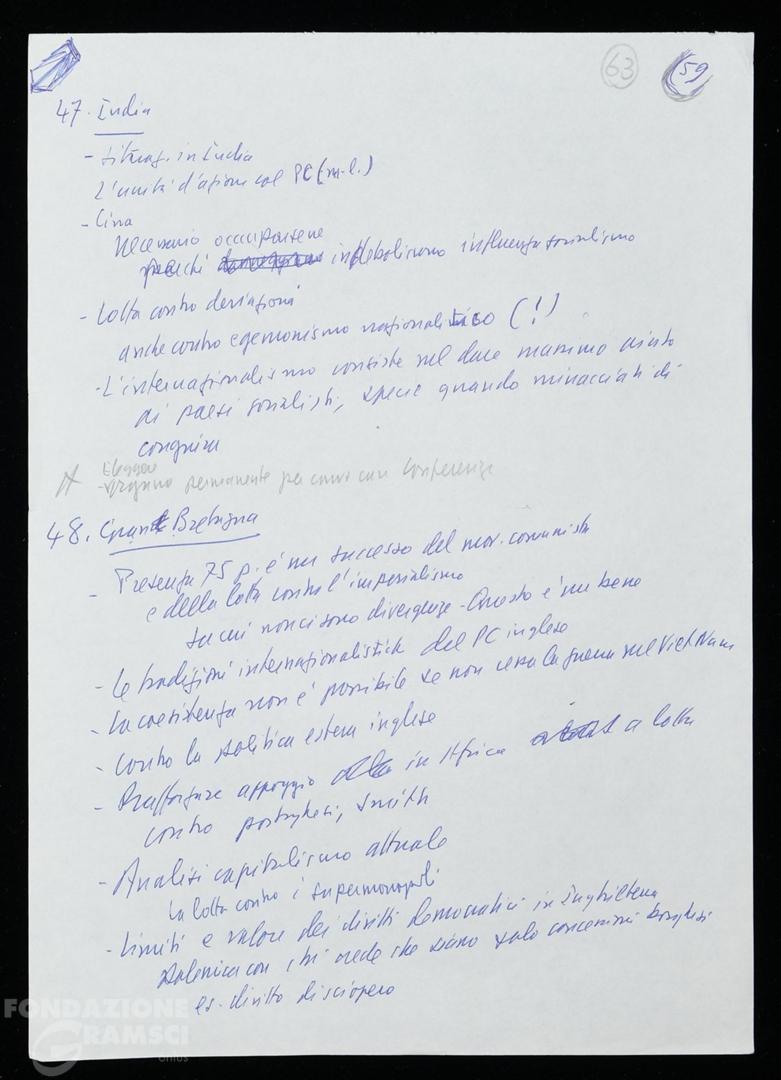 63 59
47. India
- Situaz. in India
L'unità d'azione col PC (m-l.)
- Cina
necessario occuparsene
perché indebolirono influenza socialismo
- Lotta contro deviazioni
anche contro egemonismo nazionalistico (!)
- L'internazionalismo consiste nel dare massimo aiuto
ai paesi socialisti, specie quando minacciati di
congiura
Organo permanente per convocare Conferenze
48. Gran Bretagna
- Presenza 75 p. è un successo del mov. comunista
e della lotta contro l'imperialismo
su cui non ci sono divergenze - Questo è un bene
- Le tradizioni internazionalistiche del PC inglese
- La coesistenza non è possibile se non cessa la guerra nel Viet Nam
- Contro la politica estera inglese
- Rafforzare appoggio in Africa a lotta
contro portoghesi, Smith
- Analisi capitalismo attuale
La lotta contro i supermonopoli
- Limiti e valore dei diritti democratici in Inghilterra
Polemica con chi crede che siano solo concessioni borghesi
es. diritto di sciopero
FONDAZIONE
GRAMSCI
onlus